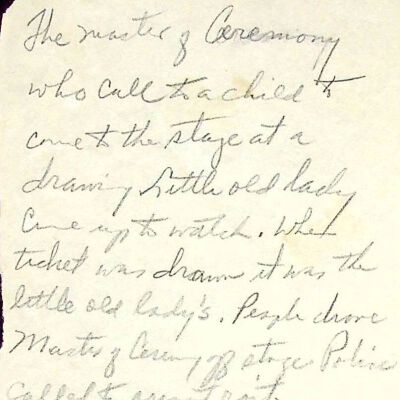 The master of Ceremony
who call to a child to
come to the stage at a
drawing little old lady
came up to watch. When
ticket was drawn it was the
little old lady's. People drove
Master of Ceremony off stage Police
called to